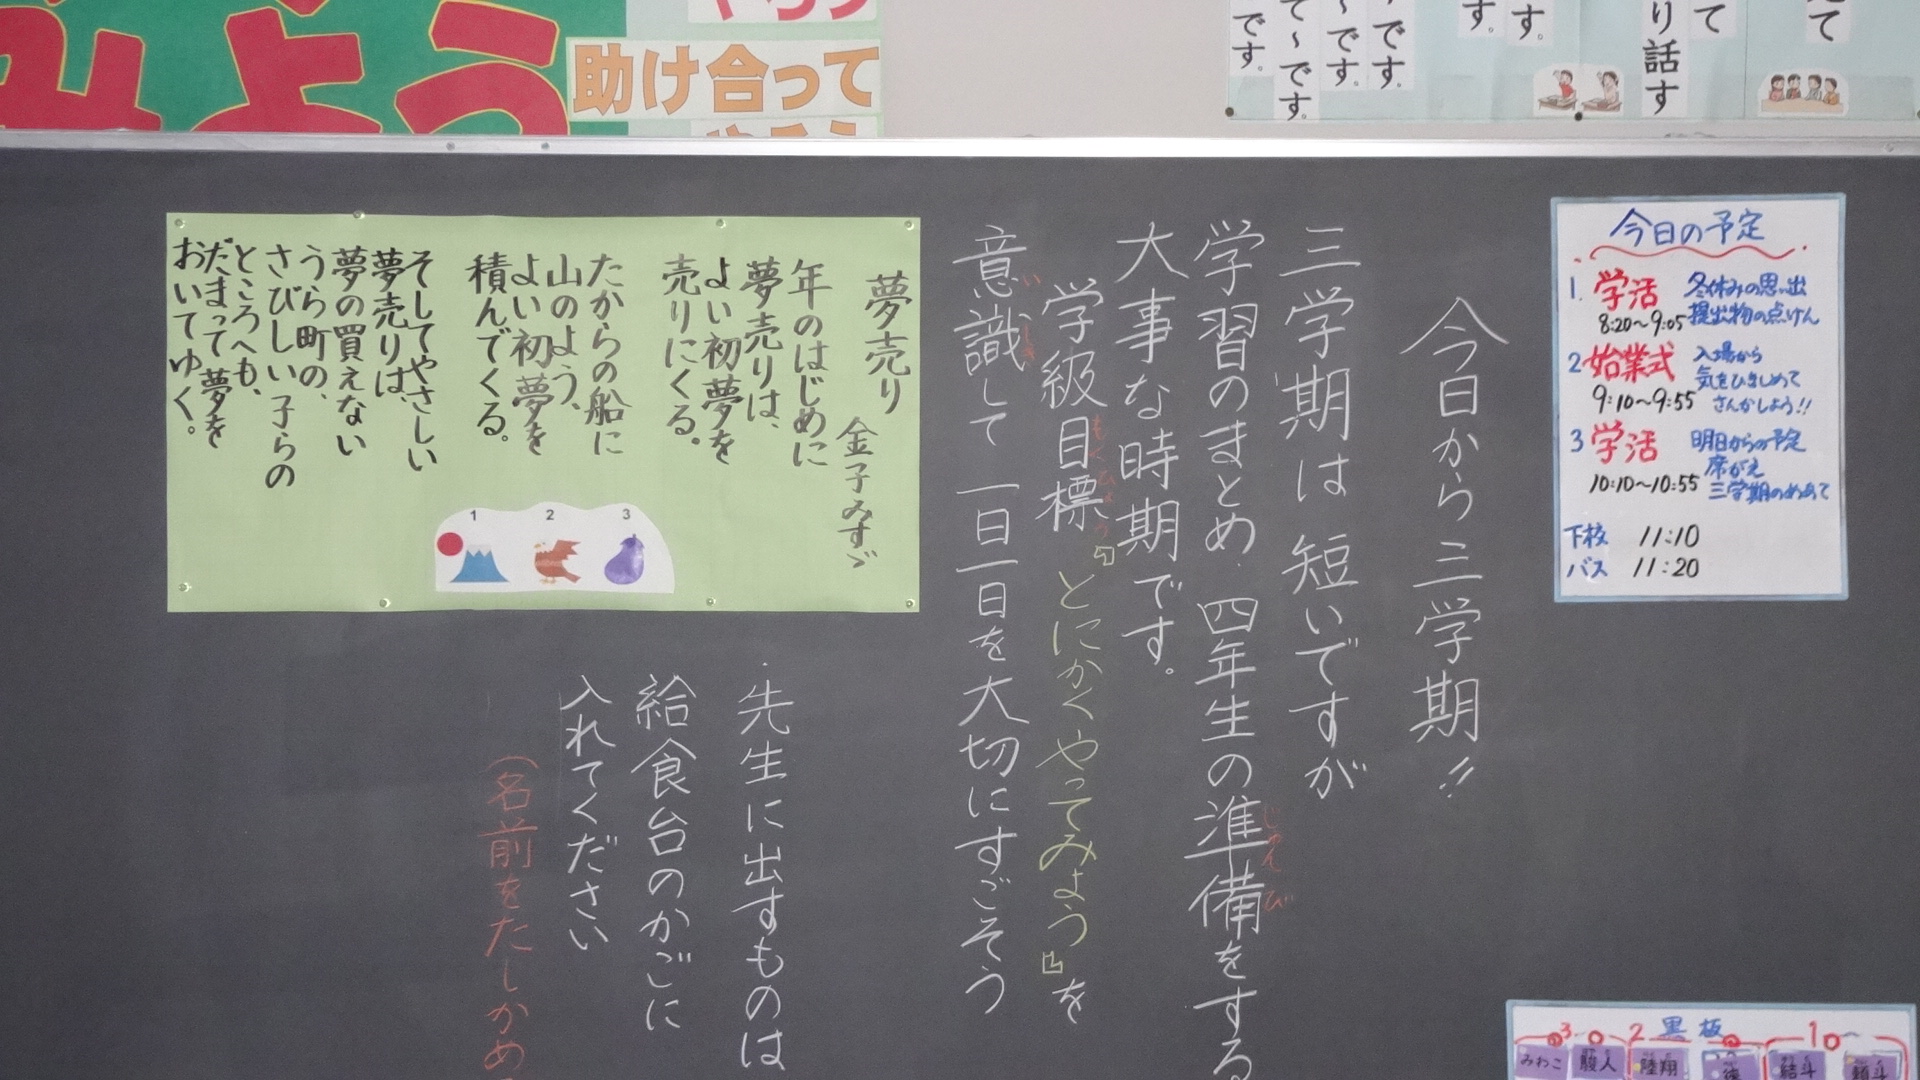 みよう
助け合って
です。
て～です。
～です。
です。
す。
す。
り話す
て
て
今日の予定
1. 学活
冬休みの思い出
提出物の点けん
8:20～9:05
2 始業式
入場から
気をひきしめて
さんかしよう!!
9:10～9:55
3 学活
明日からの予定
席がえ
三学期のめあて
10:10～10:55
下校 11:10
バス 11:20
今日から三学期!!
三学期は短いですが
学習のまとめ、四年生の準備をする
じゅんび
大事な時期です。
学級目標『とにかくやってみよう』を
もくひょう
意識して一日一日を大切にすごそう
いしき
夢売り
金子みすゞ
年のはじめに
夢売りは、
よい初夢を
売りにくる。
たからの船に
山のよう、
よい初夢を
積んでくる。
そしてやさしい
夢売りは、
夢の買えない
うら町の、
さびしい子らの
ところへも、
だまって夢を
おいてゆく。
1 2 3
・先生に出すものは
給食台のかごに
入れてください
(名前をたしかめ
黒板
3 2 1
みわこ
駿人
陸翔
結斗
頼斗